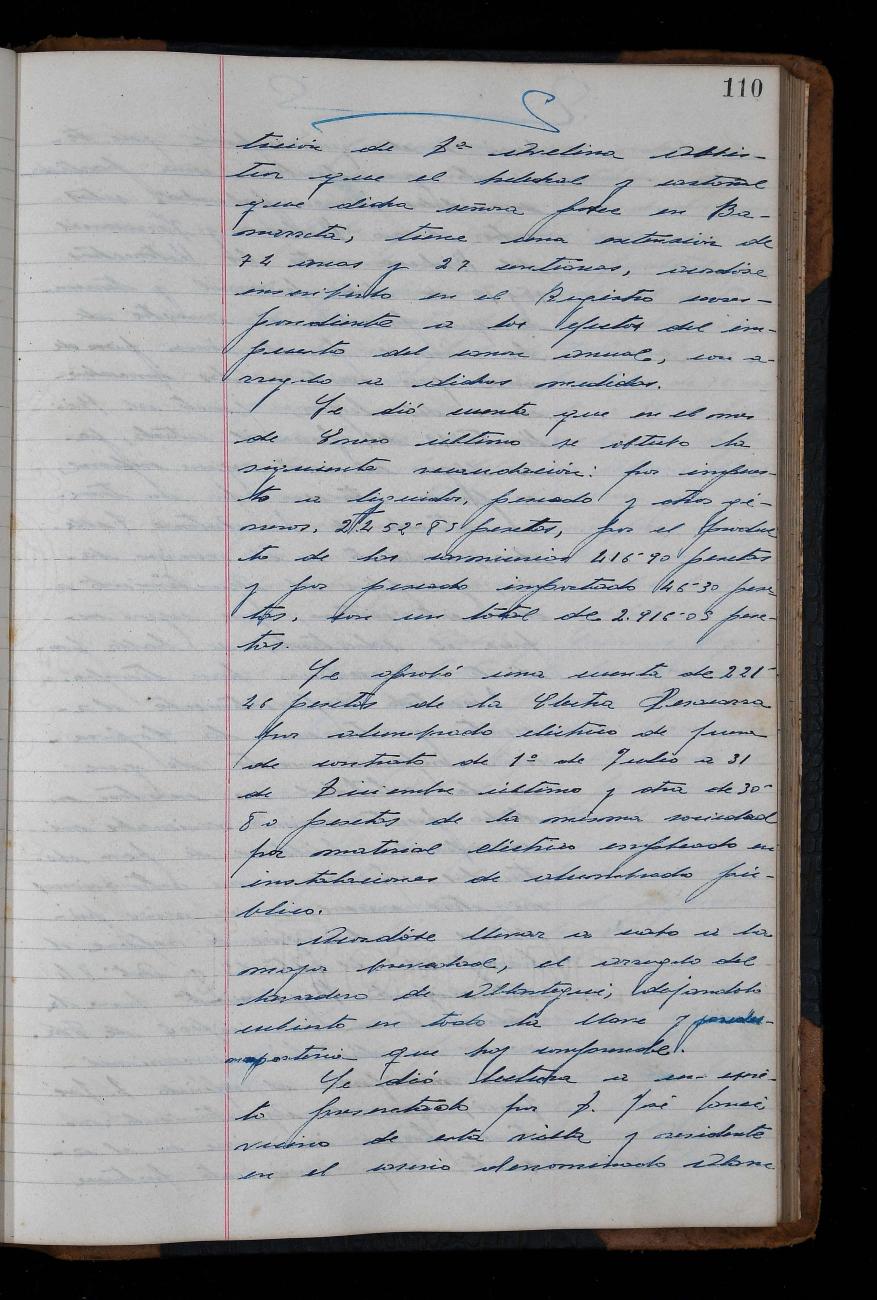 110
tición de Dª Avelina
tor que el helechal y castañal
que dicha señora posee en Ba-
marrata, tiene una extensión de
74 areas y 27 centiareas, acordóse
inscribirlo en el Registro corres-
pondiente a los efectos del im-
puesto del canon anual, con a-
rreglo a dichas medidas.
Se dió cuenta que en el mes
de Enero último se obtuvo la
siguiente recaudación: por impues-
to a liquidos, pescado y otros gé-
neros, 2452-83 pesetas, por el produc
to de las carnicerias 416-90 pesetas
y por pescado importado 46-30 pese-
tas, con un total de 2.916-03 pese-
tas.
Se aprobó una cuenta de 221-
46 pesetas de la Electra
por alumbrado eléctrico de fuera
de contrato de 1º de Julio a 31
de Diciembre último y otra de 30-
80 pesetas de la misma sociedad
por material eléctrico empleado en
instalaciones de alumbrado pú-
blico.
Acordóse llevar a cabo a la
mayor brevedad, el arreglo del
lavadero de dejandolo
cubierto en todo la llave y
mamposteria que hoy comprende.
Se dió lectura a un escri-
to presentado por D. José
vecino de esta villa y residente
en el caserio denominado